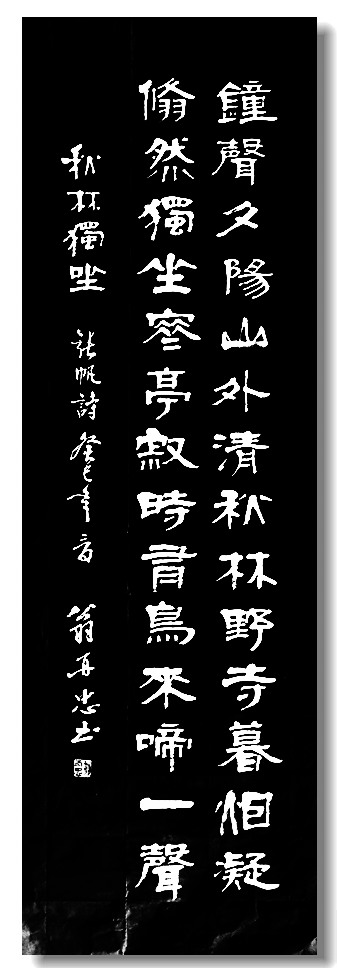 鐘聲夕陽山外清秋林野寺暮烟凝
翛然獨坐空亭寂時有鳥來啼一聲
秋林獨坐 張帆詩 癸巳年夏 翁再忠書